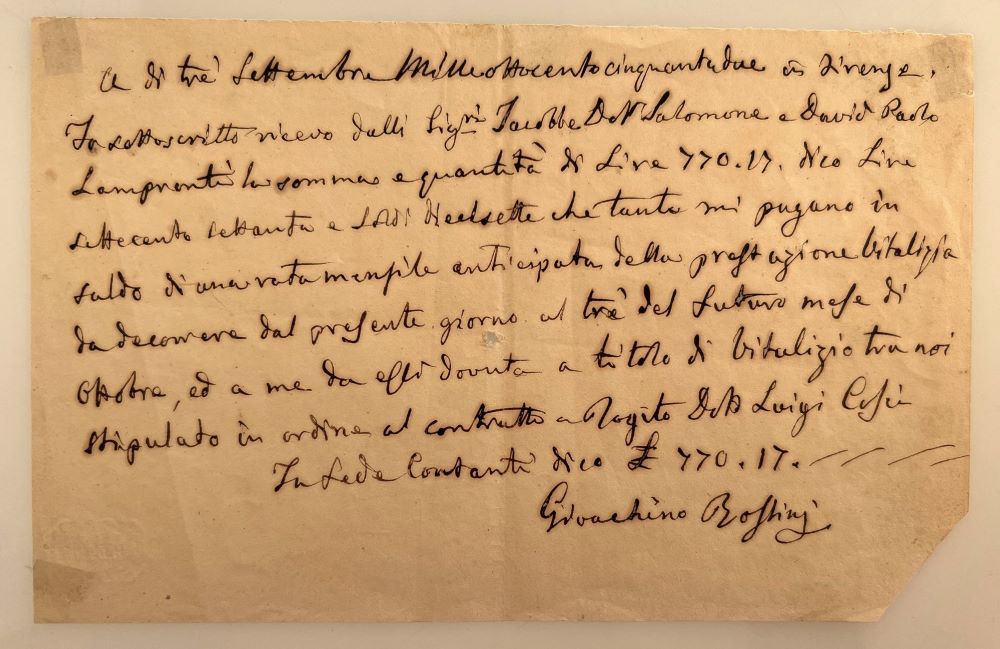 A di trè Settembre Mille ottocento cinquantadue in Firenze.
Io sottoscritto ricevo dalli Sigri Jacobbe Dotr Salomone e David Paolo
Lampronti la somma e quantità di Lire 770.17. dico Lire
settecento settanta e soldi diecisette che tanto mi pagano in
saldo di una rata mensile anticipata della prestazione Vitalizia
da decorrere dal presente giorno al trè del futuro mese di
Ottobre, ed a me da essi dovuta a titolo di Vitalizio tra noi
stipulato in ordine al contratto a Rogito Dotr Luigi
In fede Contanti dico £ 770.17.
Gioachino Rossini